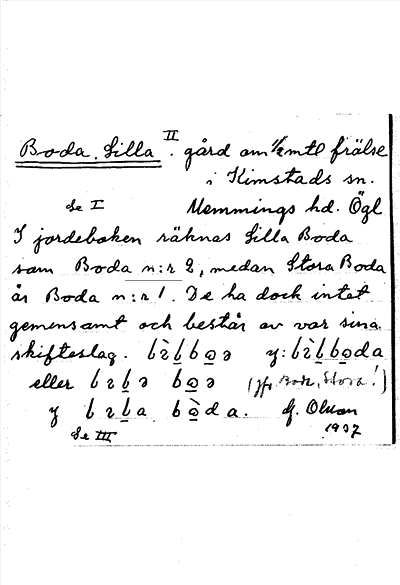 Boda, Lilla II. gård om 1/2 mtl frälse
i Kimstads sn.
Se I Memmings hd. Ögl
I jordeboken räknas Lilla Boda
som Boda n:r 2, medan Stora Boda
är Boda n:r 1. De ha dock intet
gemensamt och består av var sina
skifteslag.
eller
(jfr Boda, Stora!)
y
G. Olson
1937
Se III